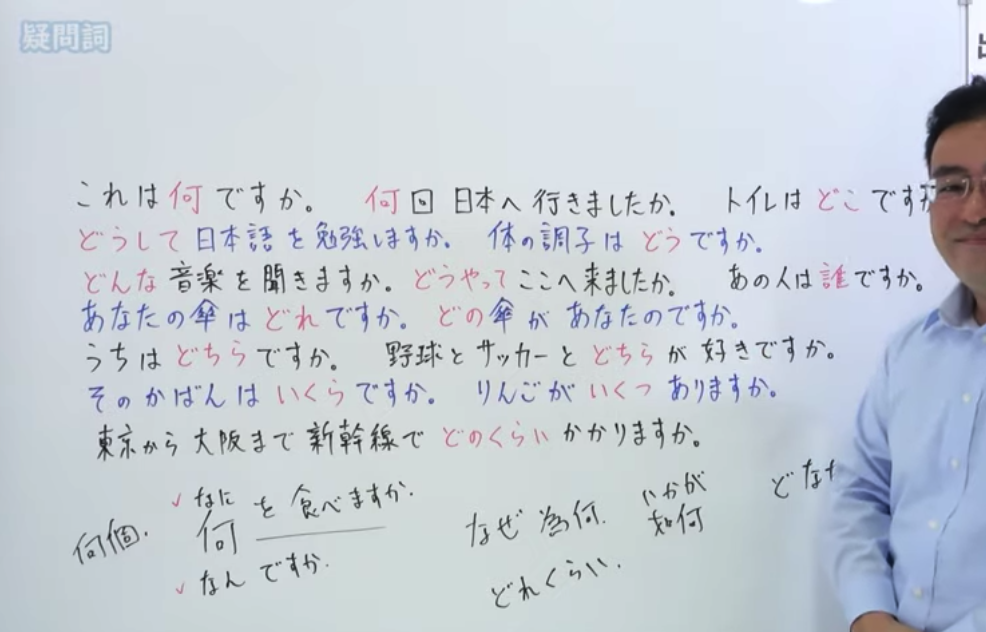 疑問詞
これは何ですか。 何回日本へ行きましたか。 トイレはどこです
どうして日本語を勉強しますか。 体の調子はどうですか。
どんな音楽を聞きますか。 どうやってここへ来ましたか。 あの人は誰ですか。
あなたの傘はどれですか。 どの傘があなたのですか。
うちはどちらですか。 野球とサッカーとどちらが好きですか。
そのかばんはいくらですか。 りんごがいくつありますか。
東京から大阪まで新幹線でどのくらいかかりますか。
なに
何個. 何 を食べますか.
なんですか.
なぜ 為何.
いかが
如何
どれくらい.
どな